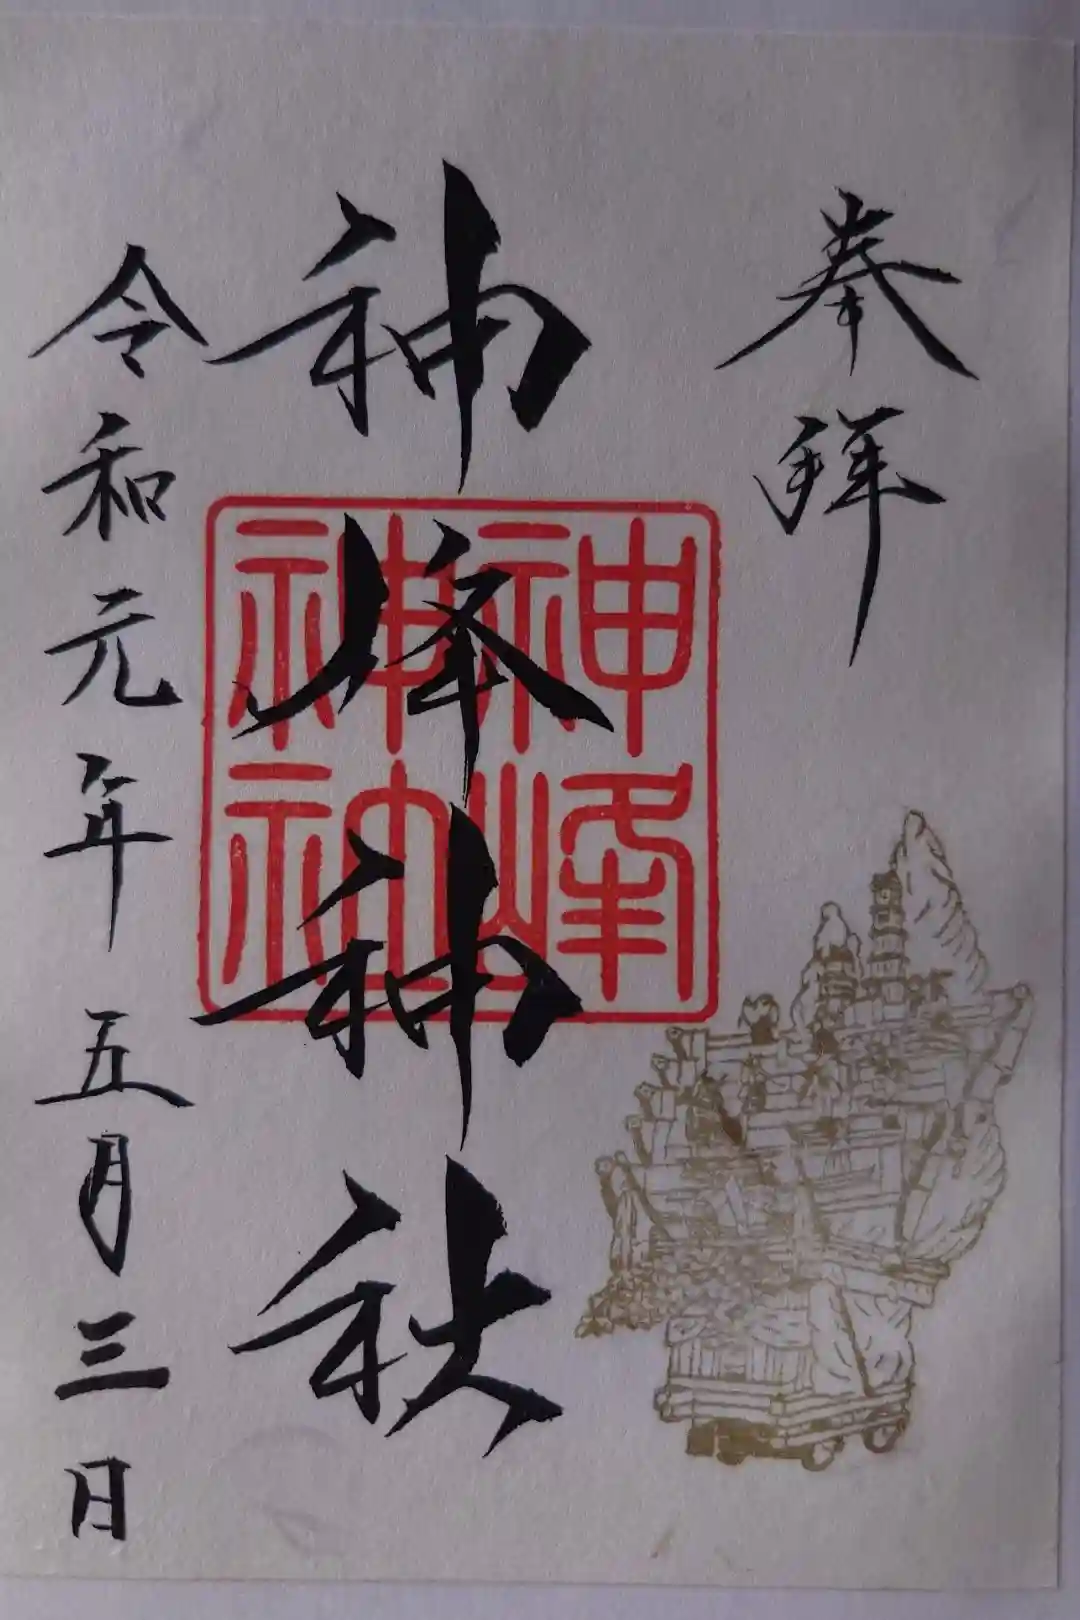 奉拜
神峰神社
令和元年五月三日
神峰
神社